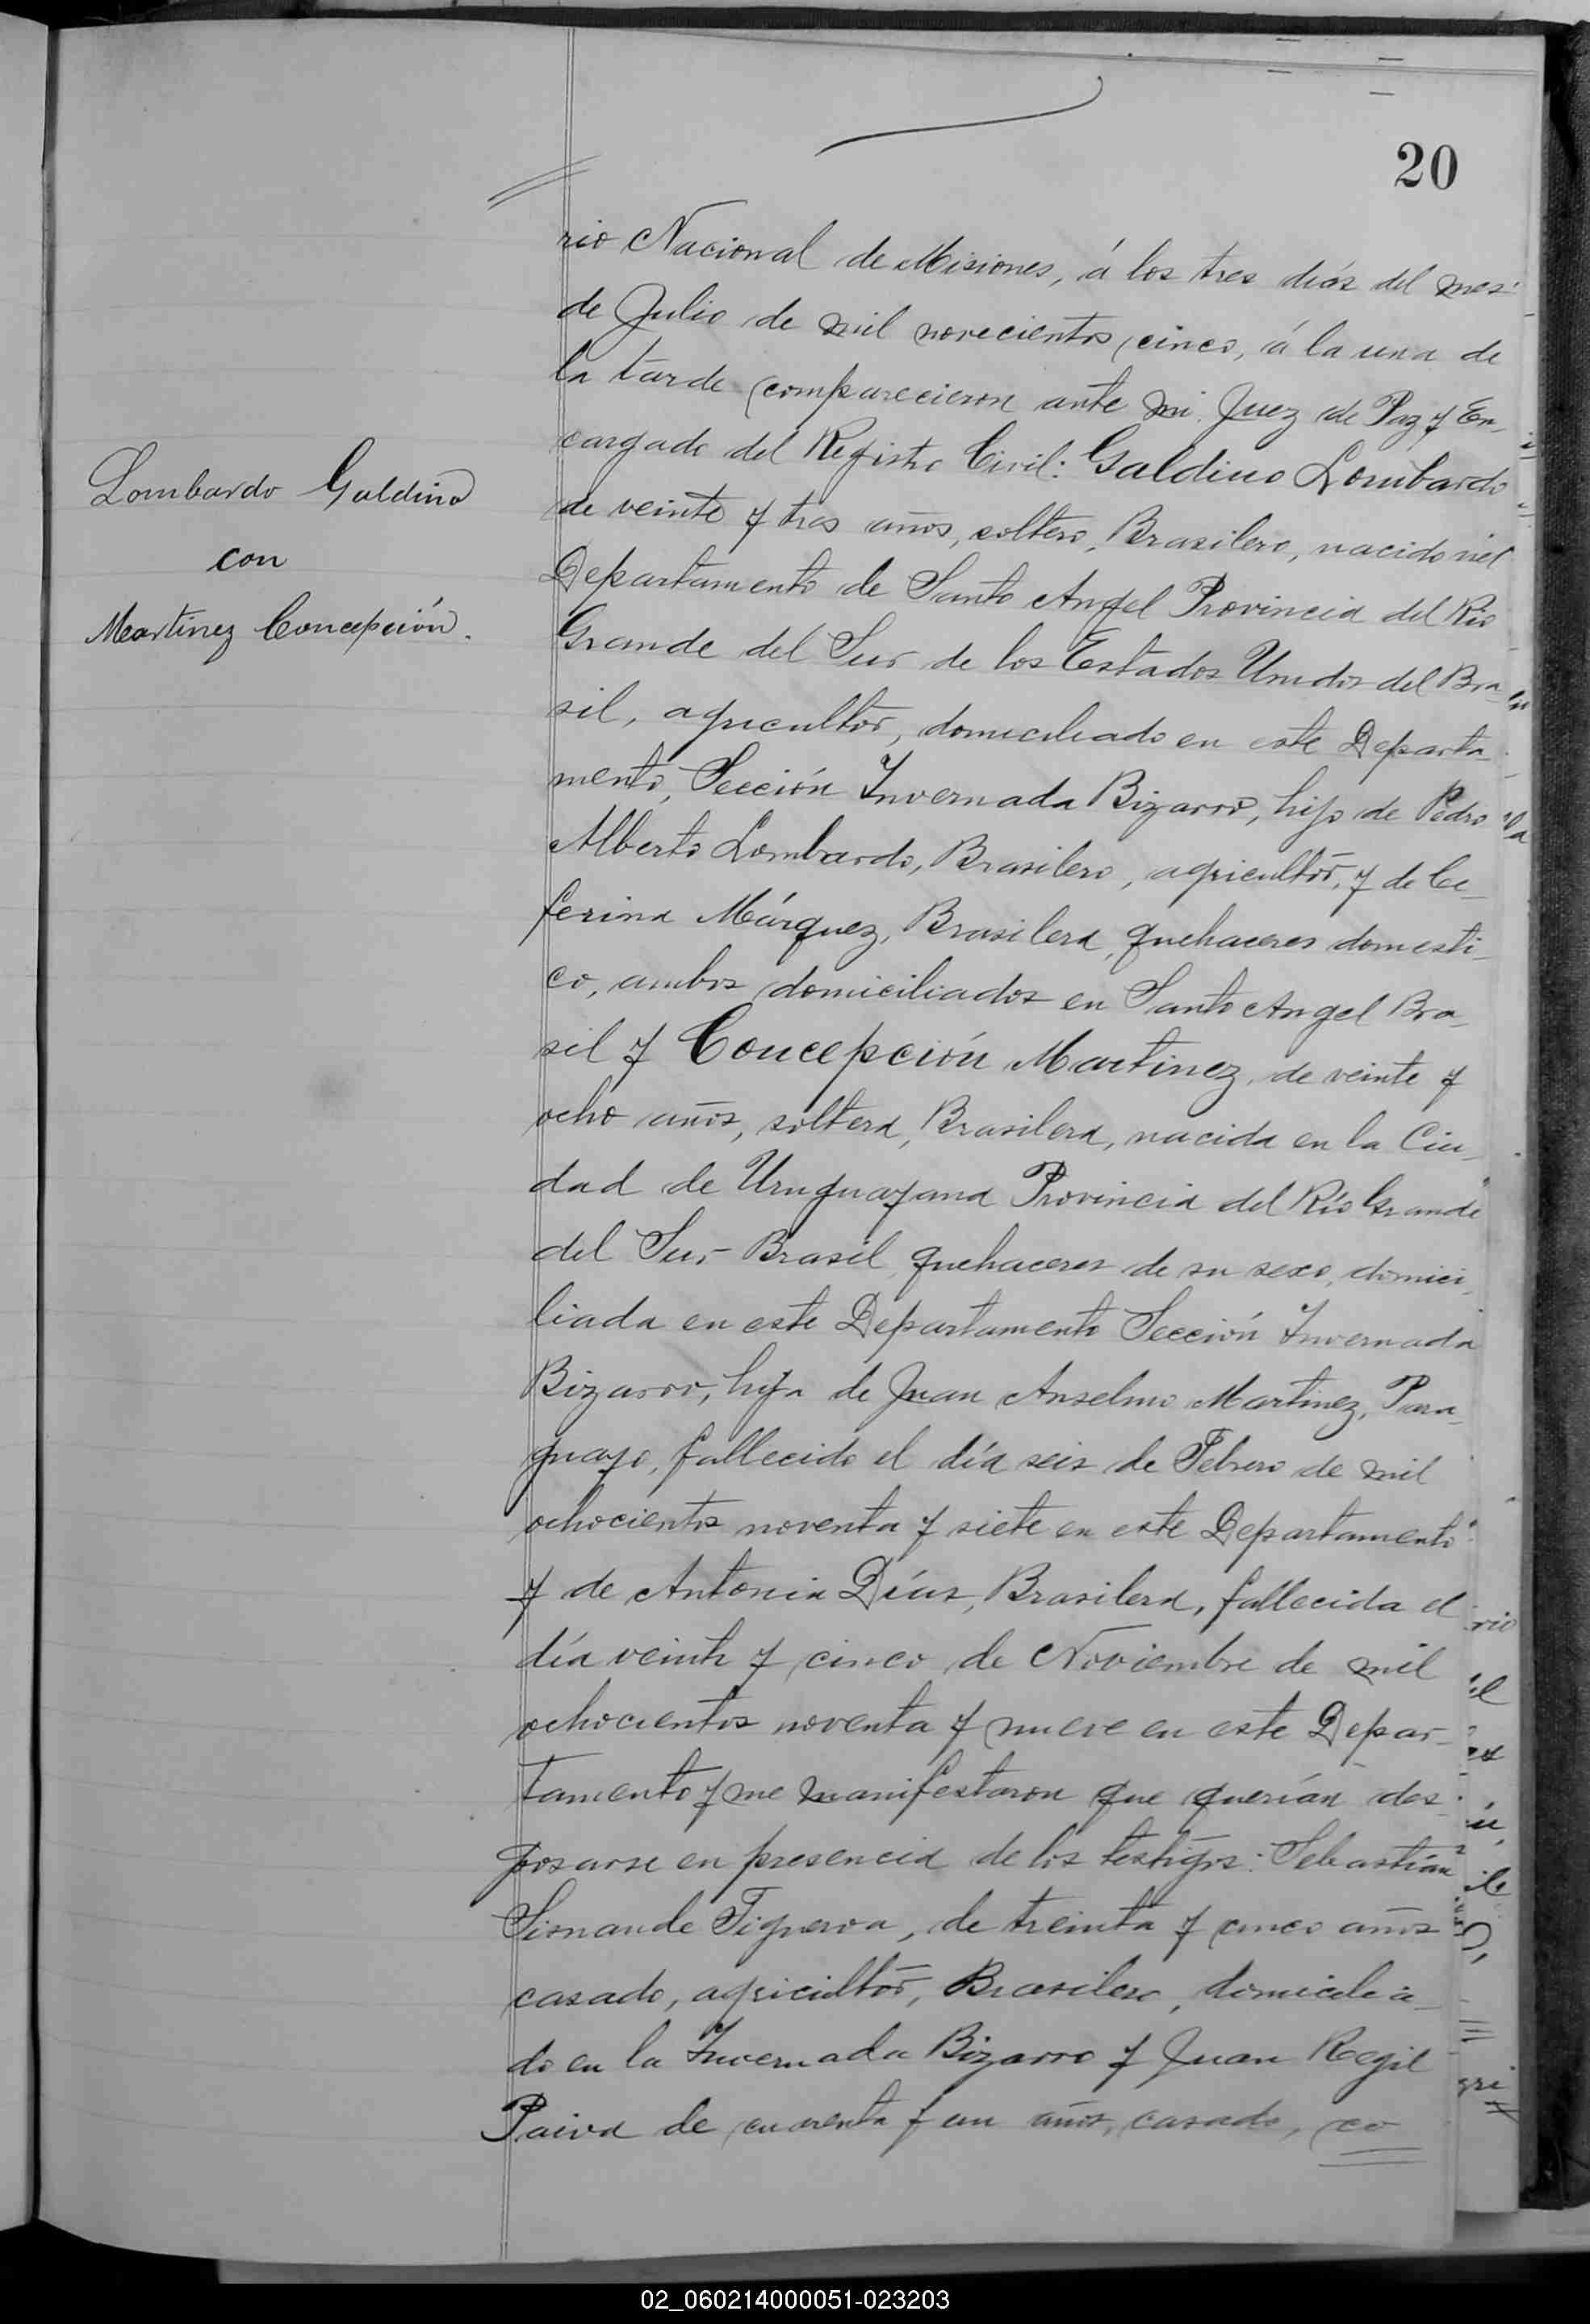 20
rio Nacional de Misiones, á los tres dias del mes
de Julio de mil novecientos cinco, á la una de
la tarde comparecieron ante mi Juez de Paz y En-
cargado del Registro Civil: Galdino Lombardo
de veinte y tres años, soltero, Brasilero, nacido nel
Departamento de Santo Angel Provincia del Rio
Grande del Sur de los Estados Unidos del Bra-
sil, agricultor, domiciliado en este Departa-
mento, Sección Invernada Bizarro, hijo de Pedro
Alberto Lombardo, Brasilero, agricultor, y de Ce-
ferina Márquez, Brasilera, quehaceres domesti-
co, ambos domiciliados en Santo Angel Bra-
sil y Concepción Martinez, de veinte y
ocho años, soltera, Brasilera, nacida en la Ciu-
dad de Uruguayana Provincia del Río Grande
del Sur Brasil, quehaceres de su sexo, domici-
liada en este Departamento Sección Invernada
Bizarro, hija de Juan Anselmo Martinez, Para-
guayo, fallecido el día seis de Febrero de mil
ochocientos noventa y siete en este Departamento
y de Antonia Días, Brasilera, fallecida el
día veinte y cinco de Noviembre de mil
ochocientos noventa y nueve en este Depar-
tamento y me manifestaron que querían des-
posarse en presencia de los testigos: Sebastián
Figueroa, de treinta y cinco años
casado, agricultor, Brasilero, domicilia-
do en la Invernada Bizarro y Juan Regil
Paiva de cuarenta y un años, casado, co
Lombardo Galdino
con
Martinez Concepción.
02_060214000051-023203